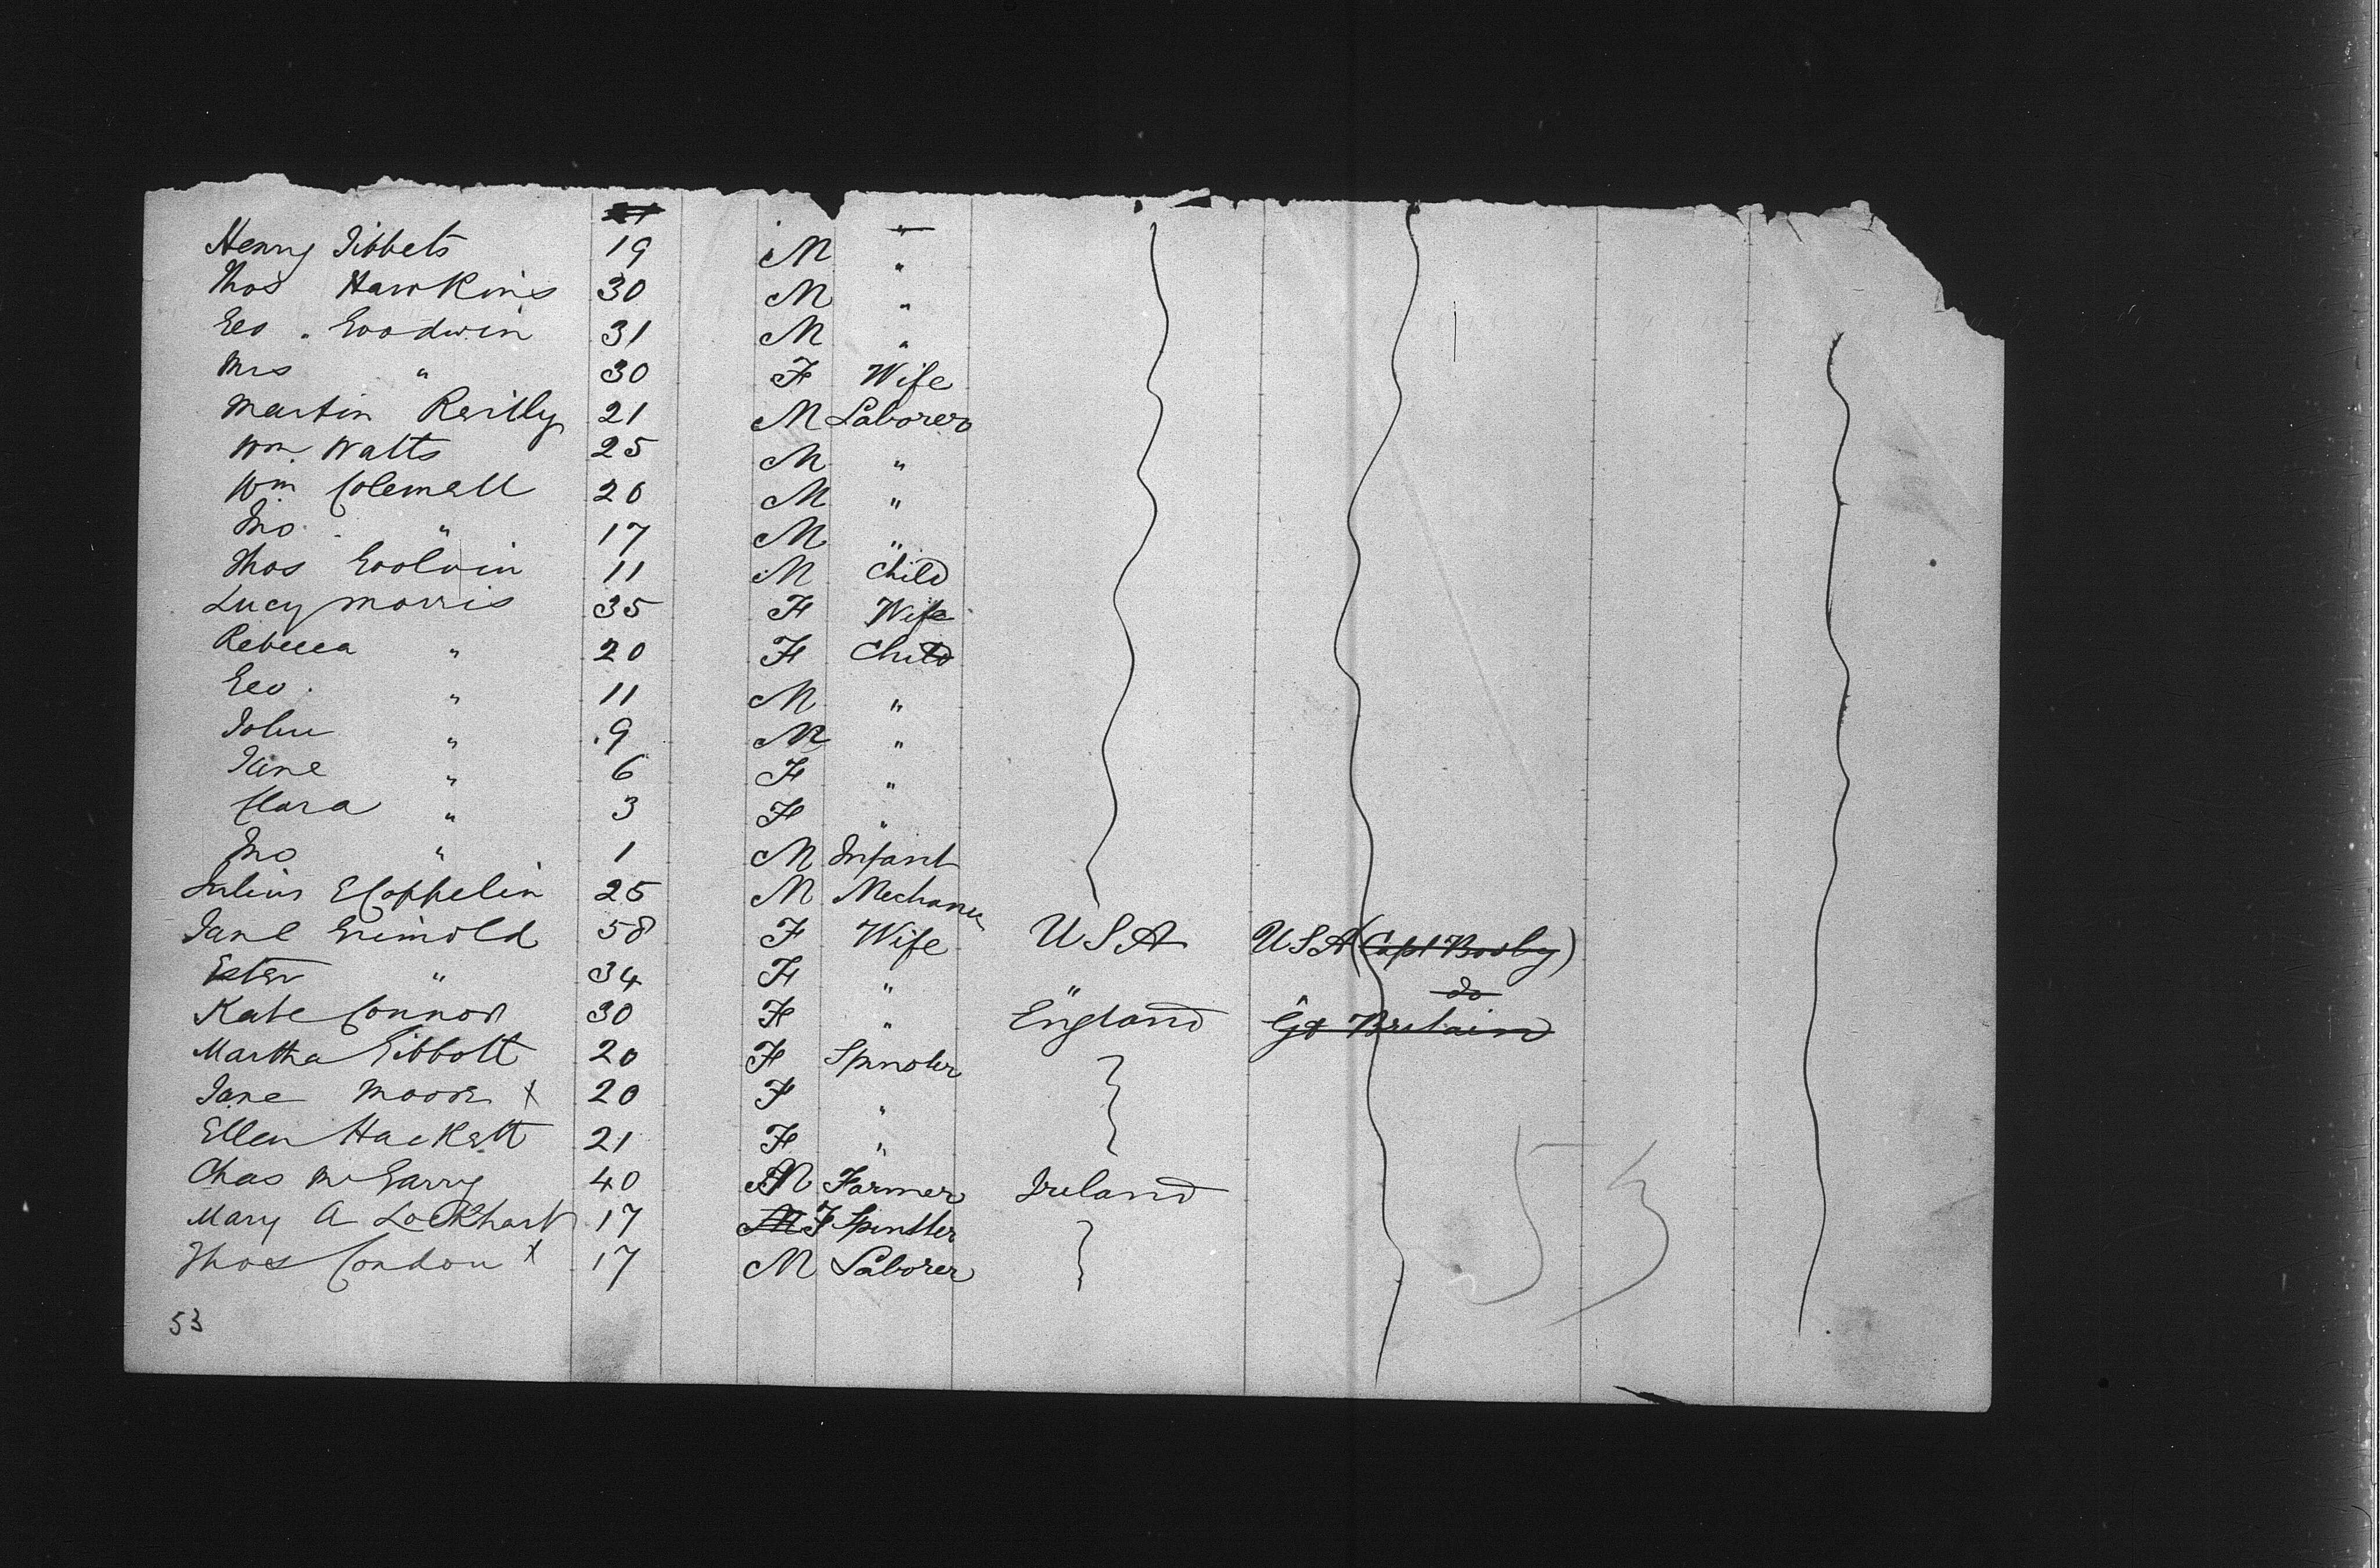 Henry Tibbets 19 M "
Thos Hawkins 30 M "
Geo. Goodwin 31 M "
Mrs " 30 F Wife
Martin Reilly 21 M Laborer
Wm. Watts 25 M "
Wm 26 M "
Jno. " 17 M "
Thos 11 M Child
Lucy Morris 35 F Wife
Rebecca " 20 F Child
Geo. " 11 M "
John " 9 M "
Jane " 6 F "
Clara " 3 F "
Jno " 1 M Infant
Julius E Coppelin 25 M Mechanic
Jane 58 F Wife USA USA (Capt Bosby)
Ester " 34 F " " do
Kate Connor 30 F " England Gt Britain
Martha Gibbott 20 F Spinster
Jane Moore x 20 F "
Ellen Hackett 21 F "
Chas McGarry 40 M Farmer Ireland
Mary A Lockhart 17 M F Spinster
Thos Condon x 17 M Laborer
53
53